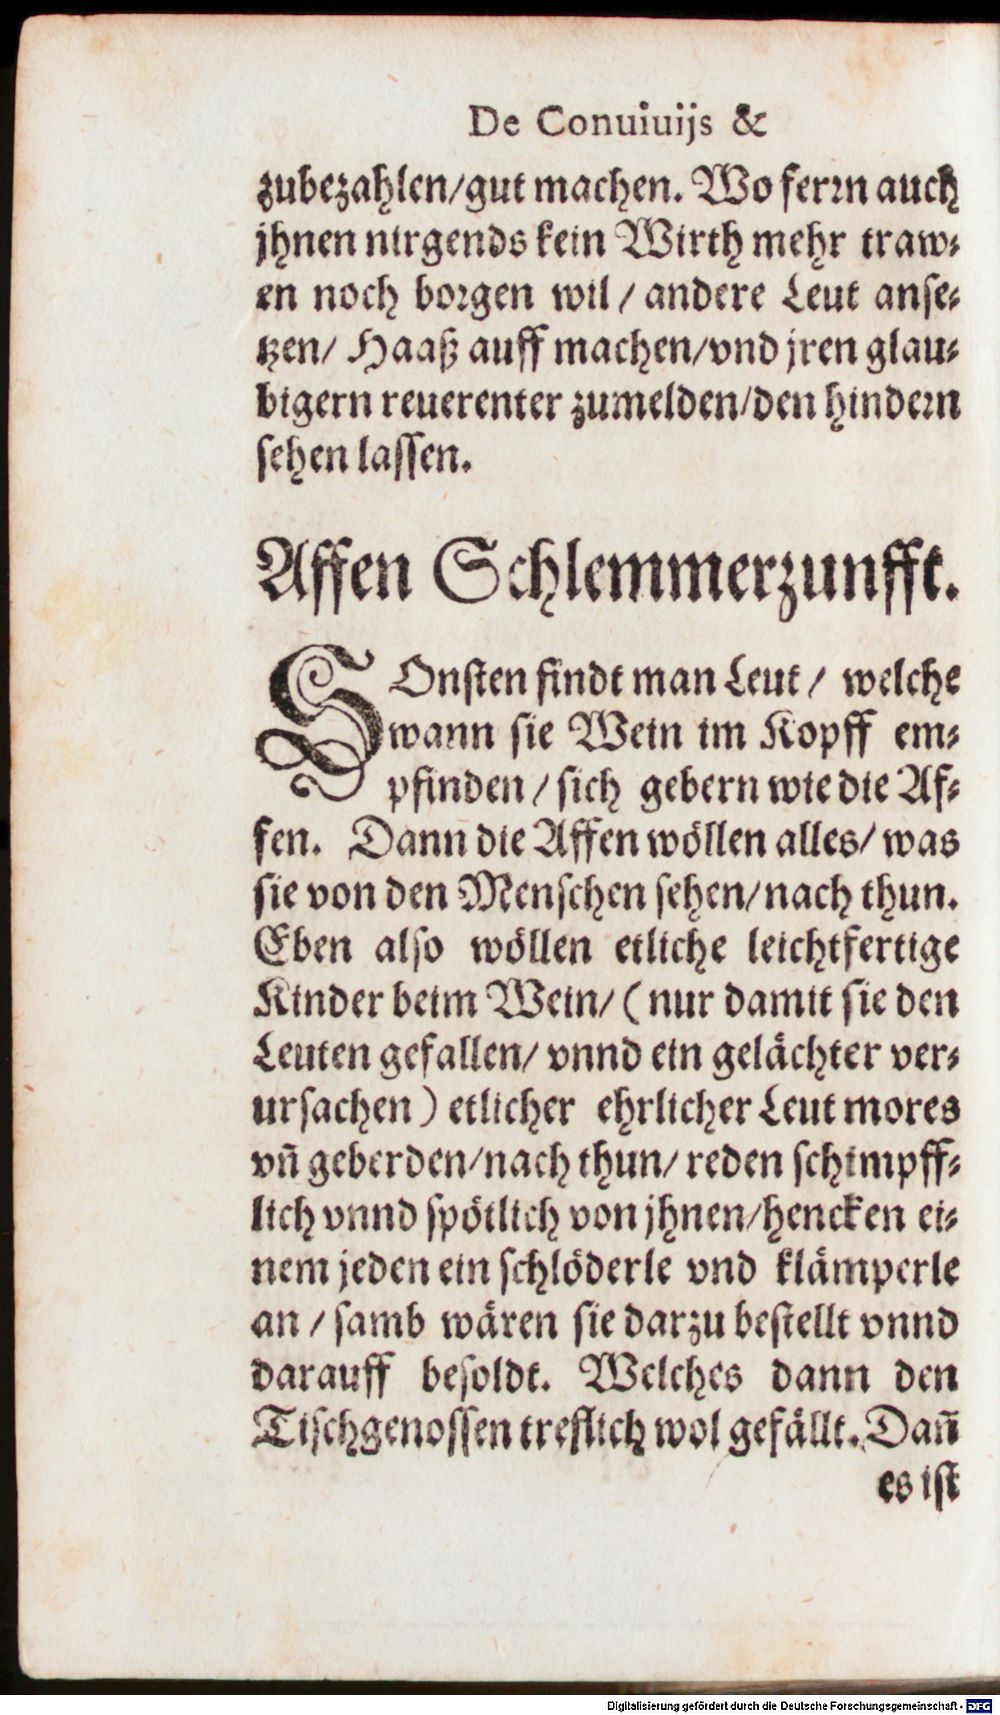 De Conuiuijs &
zubezahlen/gut machen. Wo ferꝛn auch
jhnen nirgends kein Wirth mehr traw⸗
en noch boꝛgen wil / andere Leut anse⸗
tzen/ Haaß auff machen/vnd jren glau⸗
bigern reuerenter zumelden/den hindeꝛn
sehen lassen.
Affen Schlemmerzunfft.
SOnsten findt man Leut / welche
wann sie Wein im Kopff em⸗
pfinden / sich gebern wie die Af⸗
fen. Dann die Affen wöllen alles/ was
sie von den Menschen sehen/nach thun.
Eben also wöllen etliche leichtfertige
Kinder beim Wein/ ( nur damit sie den
Leuten gefallen/ vnnd ein gelächter ver⸗
ursachen ) etlicher ehrlicher Leut mores
vñ geberden/nach thun/ reden schimpff⸗
lich vnnd spötlich von jhnen/hencken ei⸗
nem jeden ein schlöderle vnd klämperle
an / samb wären sie darzu bestellt vnnd
darauff besoldt. Welches dann den
Tischgenossen treflich wol gefällt. Dañ
es ist
Digitalisierung gefördert durch die Deutsche Forschungsgemeinschaft - DFG